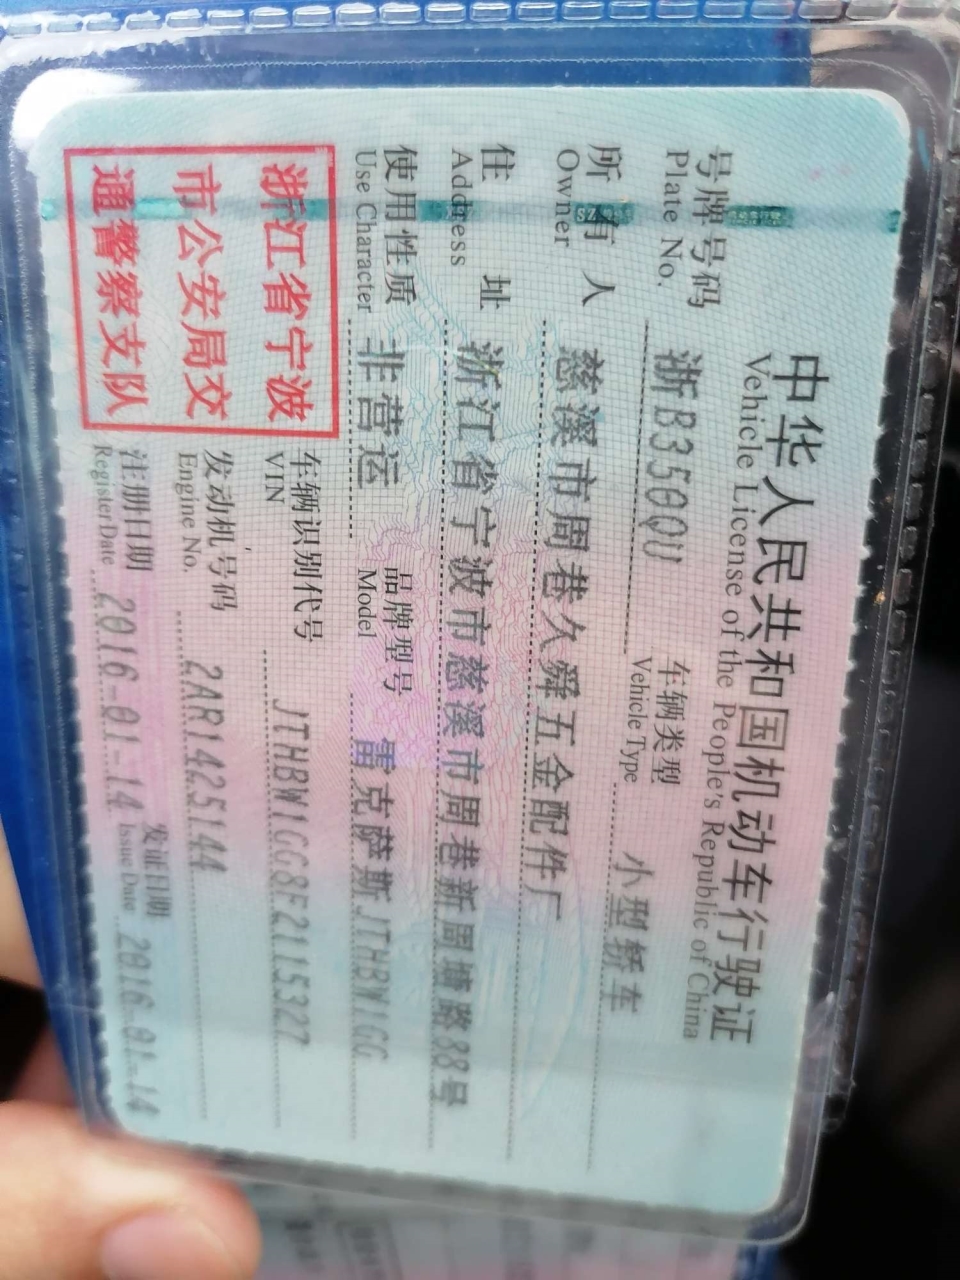 中华人民共和国机动车行驶证
Vehicle License of the People's Republic of China
号牌号码 浙B350QU 车辆类型 小型轿车
Plate No. Vehicle Type
所有人 慈溪市周巷久舜五金配件厂
Owner
住址 浙江省宁波市慈溪市周巷新周塘路88号
Address
使用性质 非营运 品牌型号 雷克萨斯JTHBW1GG
Use Character Model
浙江省宁波
市公安局交
通警察支队
车辆识别代号 JTHBW1GG8F2115327
VIN
发动机号码 2AR1425144
Engine No.
注册日期 2016-01-14 发证日期 2016-01-14
Register Date Issue Date